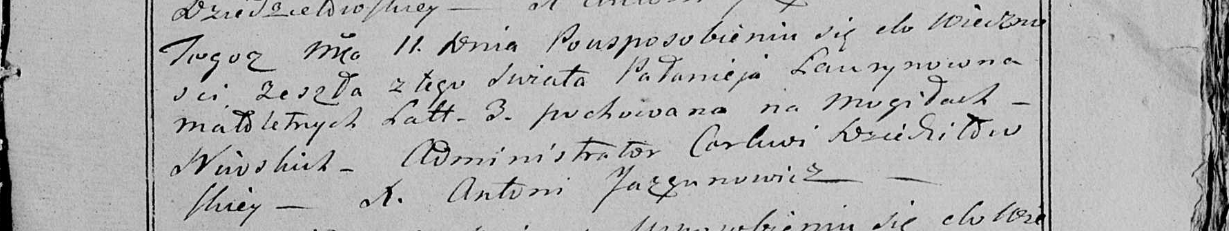 Dziedziełowskiey — X Antoni
Togoż Mca 11. dnia Pousposobieniu się do Wieczno
sci zeszła z tego Swiata Pałanieja Laurynowna
małoletnych Latt. 3. pochowana na Mogiłach —
Niwskich — Administrator Cerkwi Dziedziłow
skiey — X. Antoni Jazgunowicz —
się do Wie